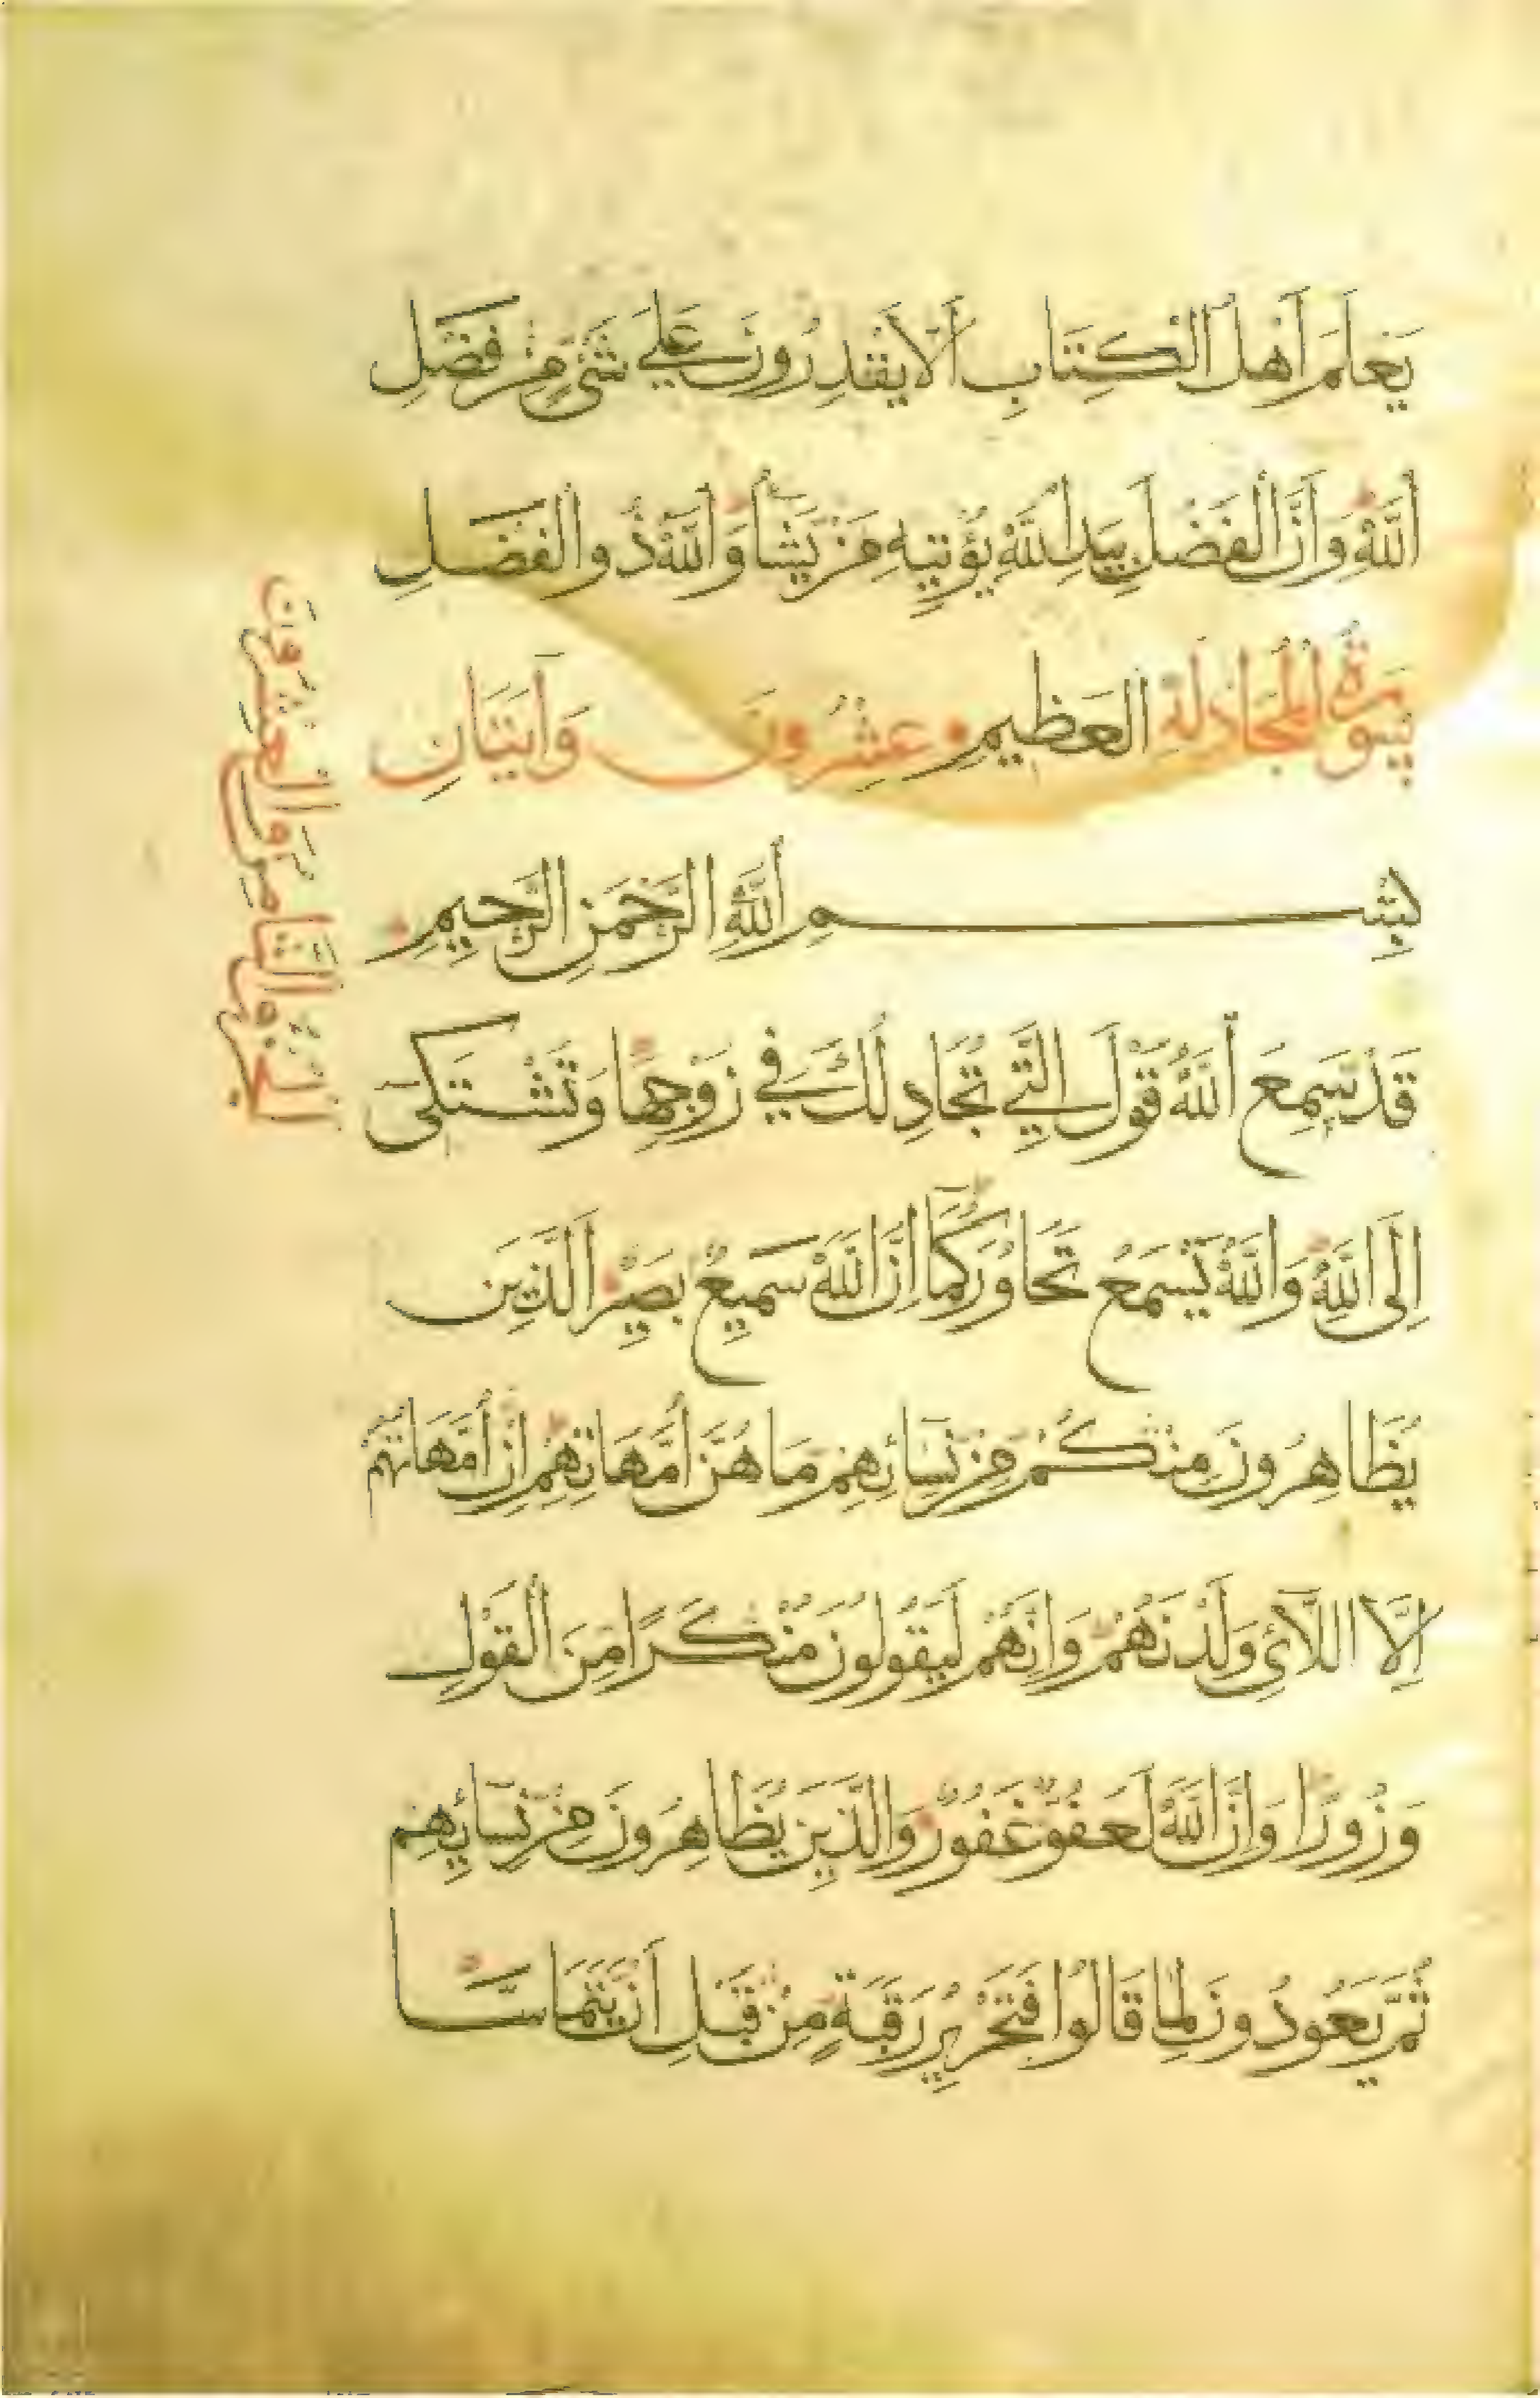 يَعْلَمَ أَهْلُ الْكِتَابِ أَلَّا يَقْدِرُونَ عَلَى شَيْءٍ مِنْ فَضْلِ
اللَّهِ وَأَنَّ الْفَضْلَ بِيَدِ اللَّهِ يُؤْتِيهِ مَنْ يَشَاءُ وَاللَّهُ ذُو الْفَضْلِ
سُورَةُ الْمُجَادَلَةِ الْعَظِيمِ عِشْرُونَ وَآيَتَانِ
بِسْمِ اللَّهِ الرَّحْمَنِ الرَّحِيمِ
قَدْ سَمِعَ اللَّهُ قَوْلَ الَّتِي تُجَادِلُكَ فِي زَوْجِهَا وَتَشْتَكِي
إِلَى اللَّهِ وَاللَّهُ يَسْمَعُ تَحَاوُرَكُمَا إِنَّ اللَّهَ سَمِيعٌ بَصِيرٌ الَّذِينَ
يُظَاهِرُونَ مِنْكُمْ مِنْ نِسَائِهِمْ مَا هُنَّ أُمَّهَاتِهِمْ إِنْ أُمَّهَاتُهُمْ
إِلَّا اللَّائِي وَلَدْنَهُمْ وَإِنَّهُمْ لَيَقُولُونَ مُنْكَرًا مِنَ الْقَوْلِ
وَزُورًا وَإِنَّ اللَّهَ لَعَفُوٌّ غَفُورٌ وَالَّذِينَ يُظَاهِرُونَ مِنْ نِسَائِهِمْ
ثُمَّ يَعُودُونَ لِمَا قَالُوا فَتَحْرِيرُ رَقَبَةٍ مِنْ قَبْلِ أَنْ يَتَمَاسَّا
الجزو الثامن والعشرون